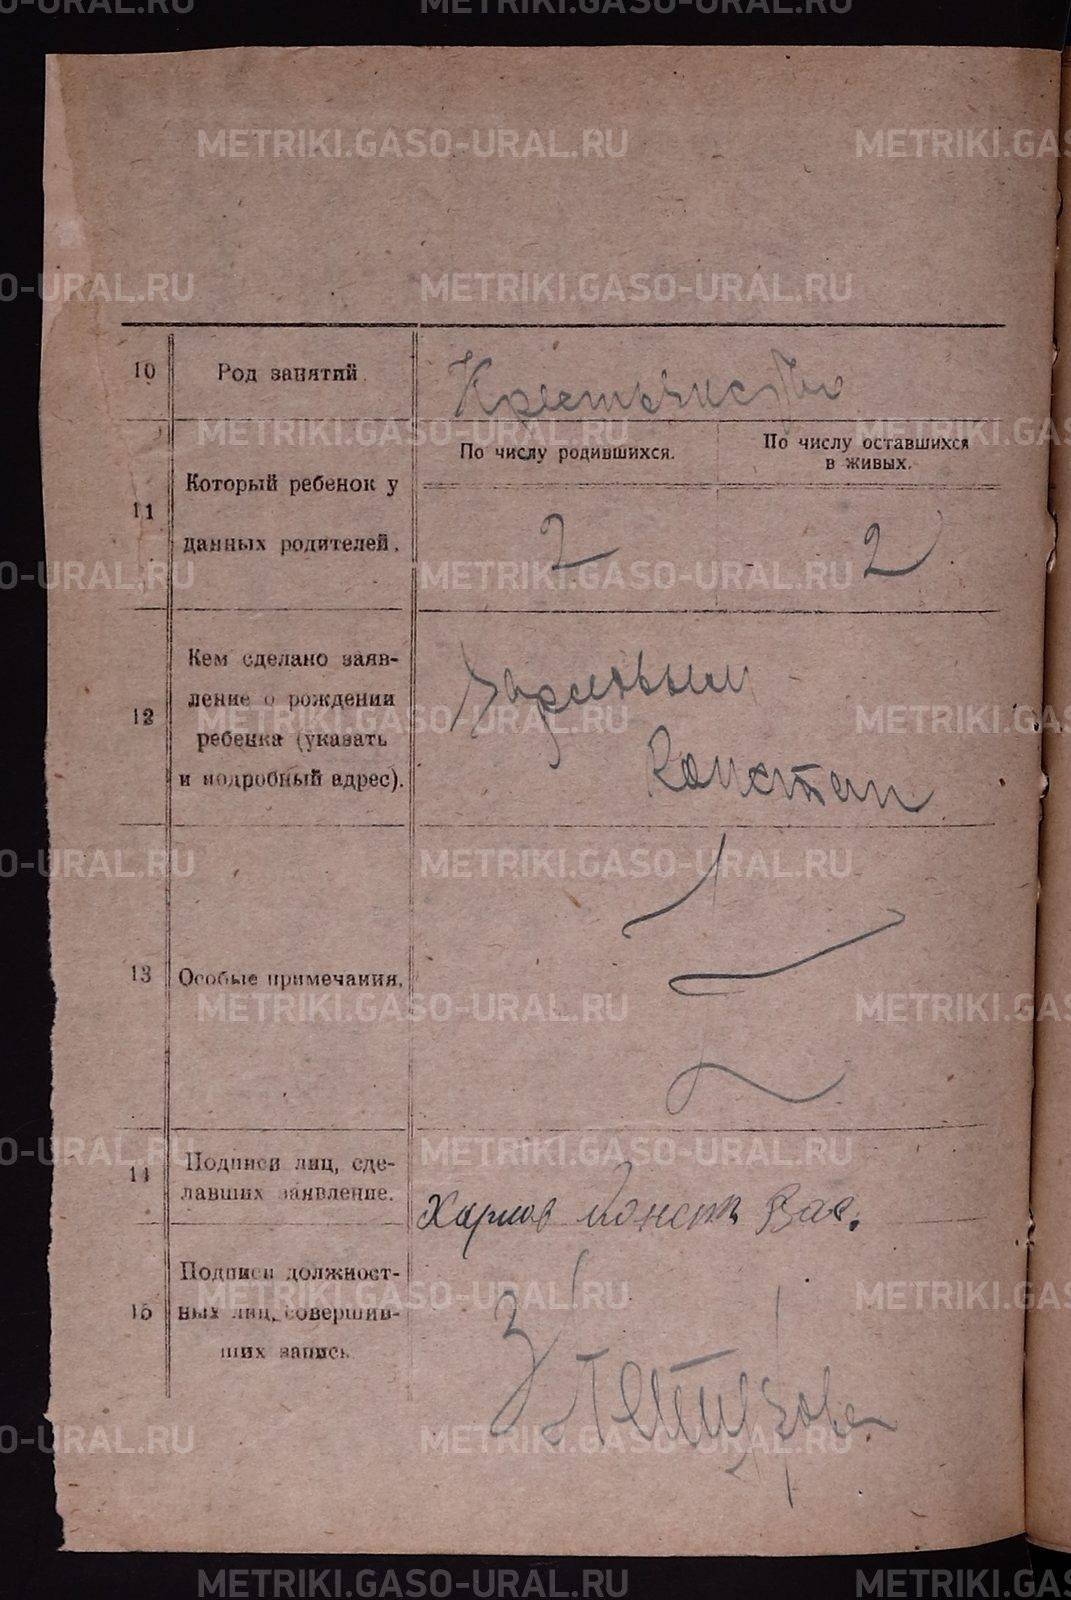 10
Род занятий.
Крестьянство
11
Который ребенок у
данных родителей.
По числу родившихся.
По числу оставшихся
в живых.
2
2
12
Кем сделано заяв-
ление о рождении
ребенка (указать
и подробный адрес).
Констан
13
Особые примечания.
14
Подписи лиц, сде-
лавших заявление.
Харлов Конст Вас.
15
Подписи должност-
ных лиц, совершив-
ших запись
METRIKI.GASO-URAL.RU